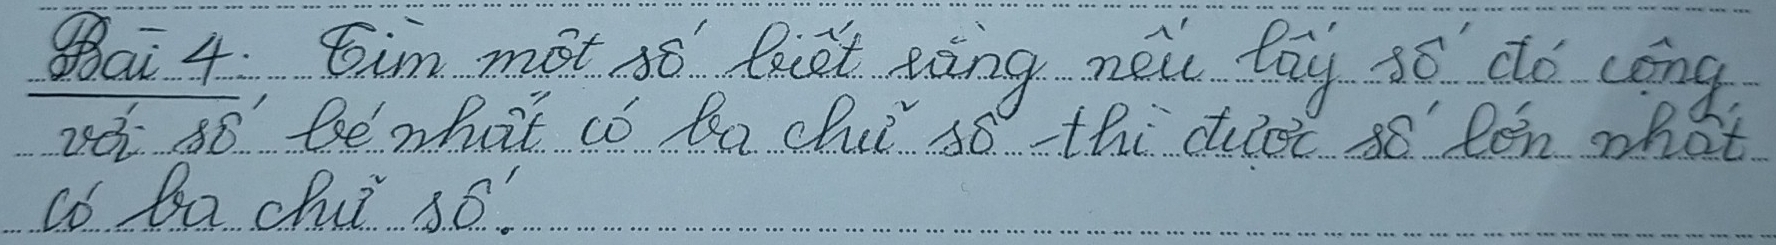 Bài 4: Tìm một số biết rằng nếu lấy số đó cộng
với số bé nhất có ba chữ số thì được số lớn nhất
có ba chữ số.